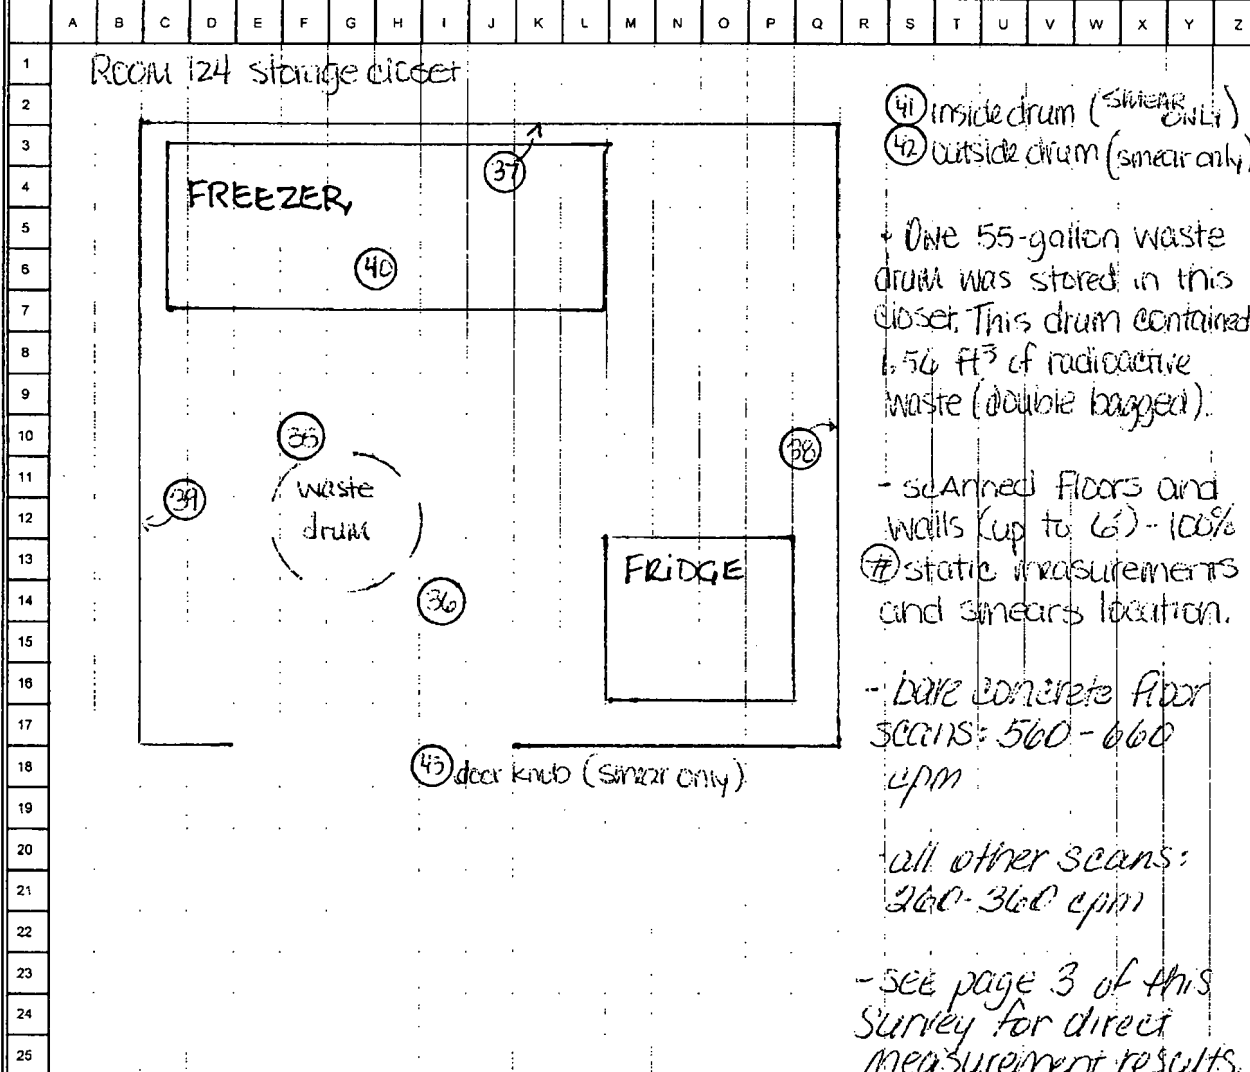 A B C D E F G H I J K L M N O P Q R S T U V W X Y Z
1
2
3
4
5
6
7
8
9
10
11
12
13
14
15
16
17
18
19
20
21
22
23
24
25
ROOM 124 storage closet
37
FREEZER
40
35
waste
drum
39
38
36
FRIDGE
43 door knob (smear only)
41 inside drum (SMEAR ONLY)
42 outside drum (smear only)
- One 55-gallon waste
drum was stored in this
closet. This drum contained
1.54 ft³ of radioactive
waste (double bagged).
- scanned floors and
walls (up to 6') - 100%
# static measurements
and smears location.
- bare concrete floor
scans: 560-660
cpm
- all other scans:
260-360 cpm
- see page 3 of this
survey for direct
measurement results.